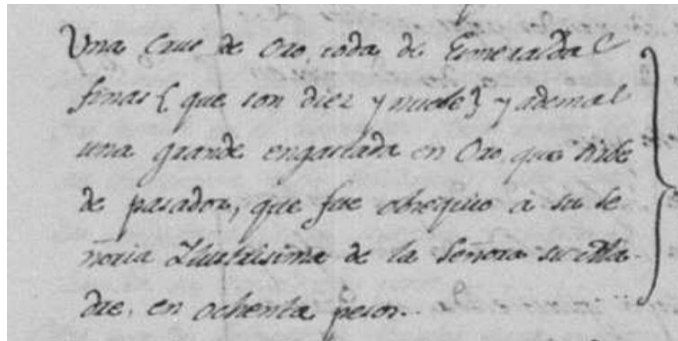 Una Cruz de Oro, toda de Esmeralda
finas (que son diez y nuebe) y ademas
una grande engastada en Oro, que sirbe
de pasador, que fue obsequio a su Se
ñoria Ilustrisima de la Señora su Ma
dre, en ochenta pesos.